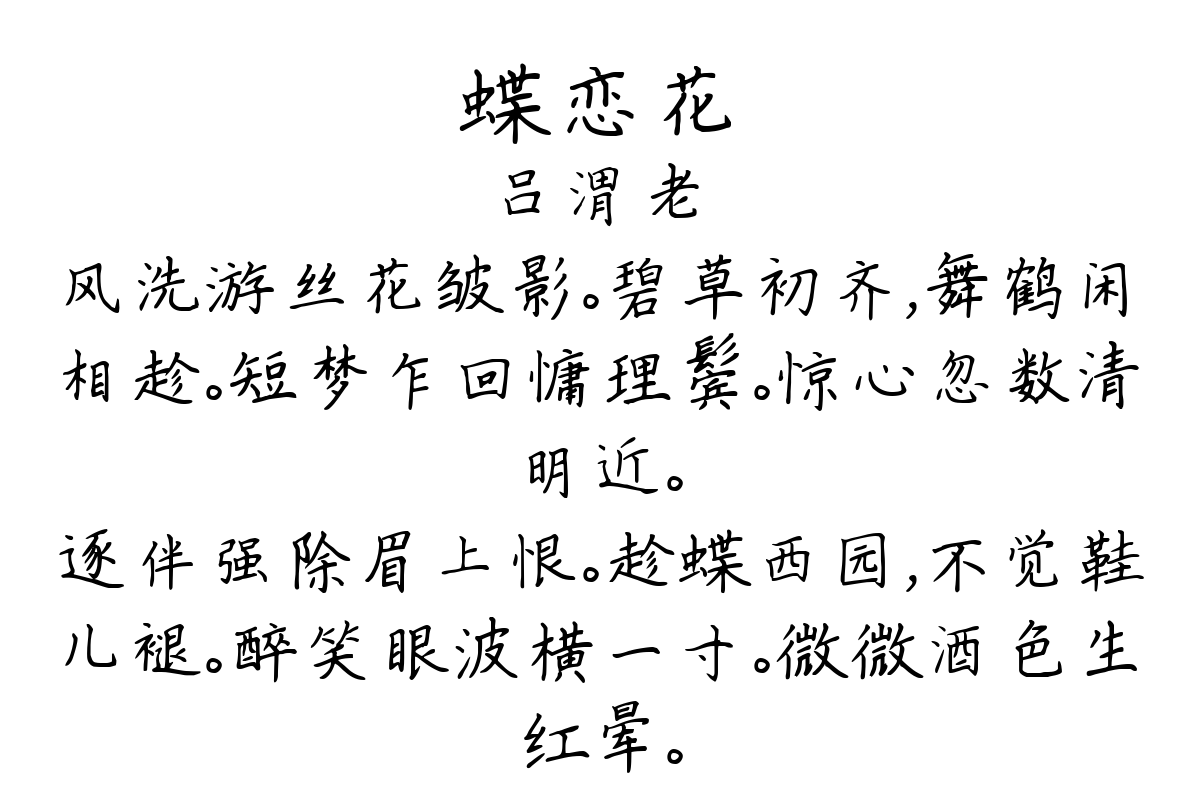 蝶恋花
吕渭老
风洗游丝花皱影。碧草初齐,舞鹤闲
相趁。短梦乍回慵理鬓。惊心忽数清
明近。
逐伴强除眉上恨。趁蝶西园,不觉鞋
儿褪。醉笑眼波横一寸。微微酒色生
红晕。